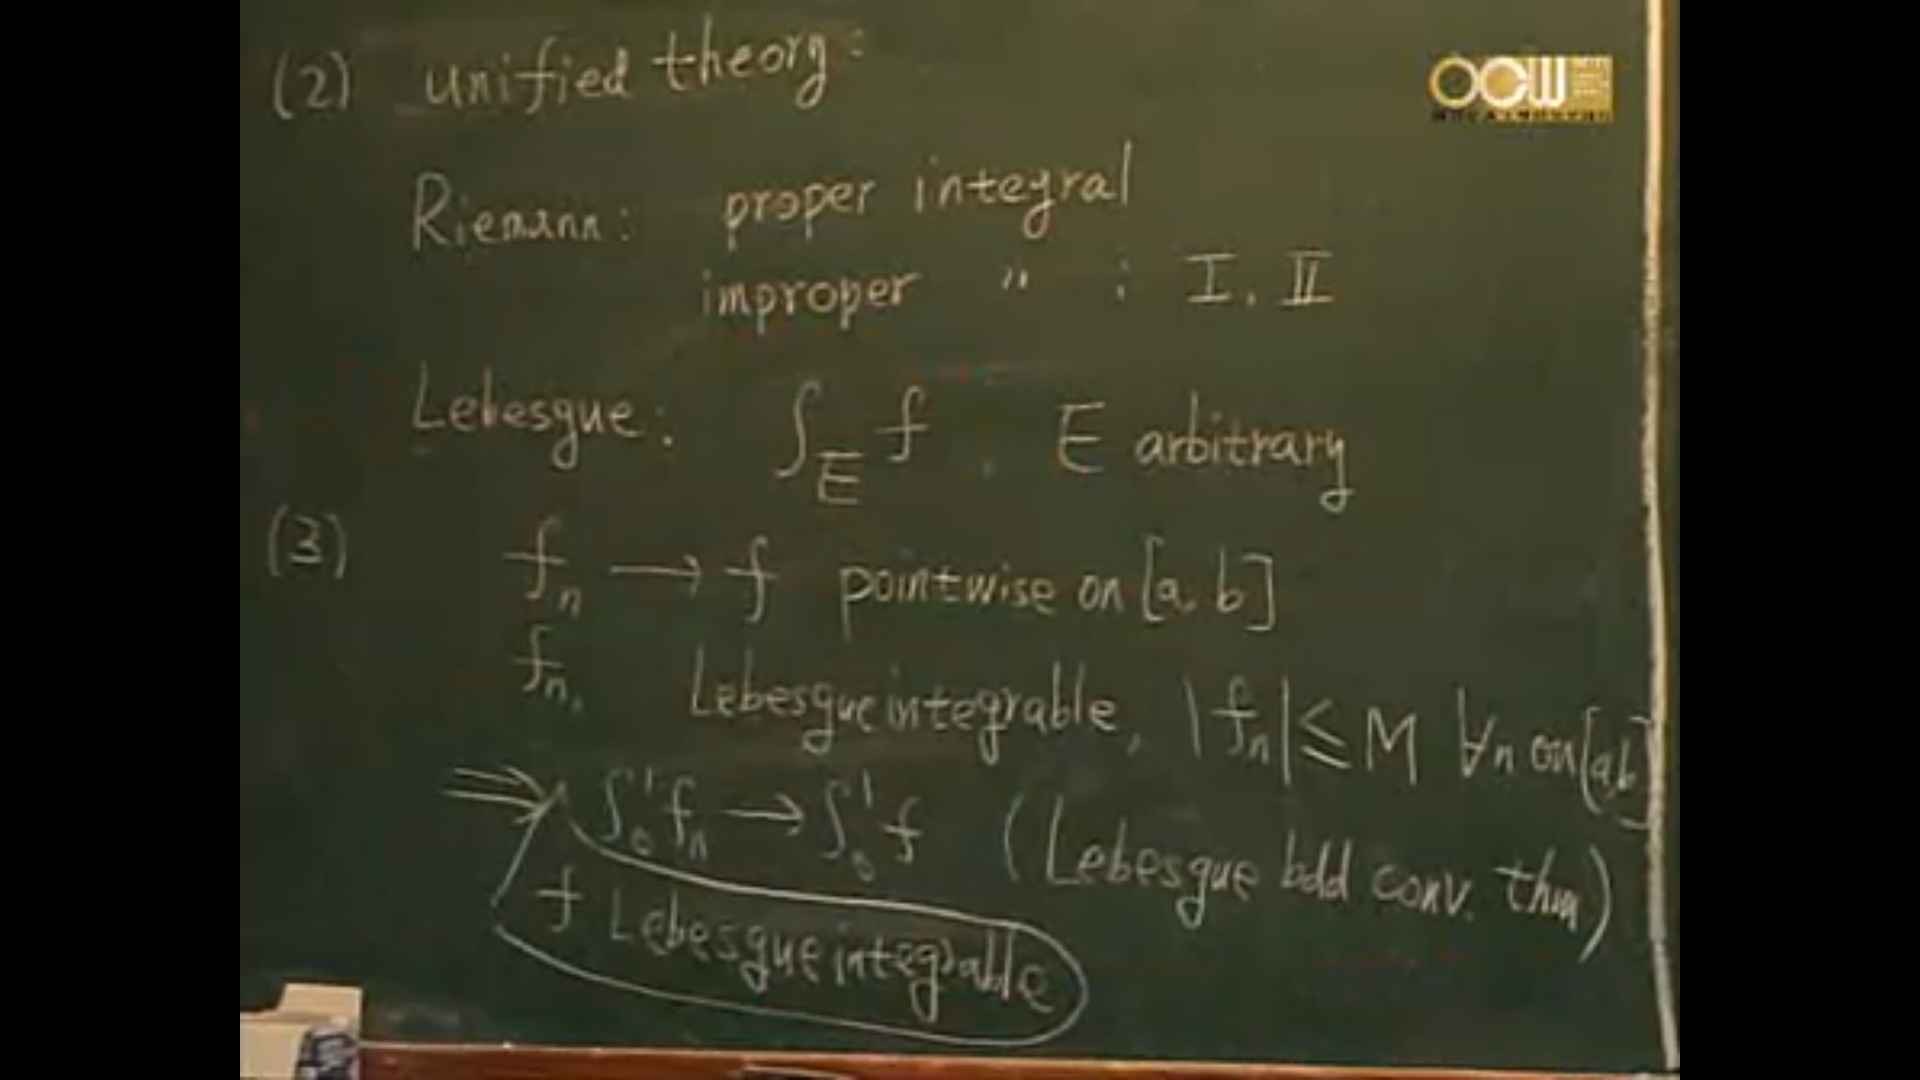 OCW
(2) unified theory:
Riemann: proper integral
improper " : I, II
Lebesgue: ∫_E f, E arbitrary
(3) f_n → f pointwise on [a, b]
f_n, Lebesgue integrable, |f_n| ≤ M ∀n on [a,b]
⇒ ∫_0^1 f_n → ∫_0^1 f (Lebesgue bdd conv. thm)
f Lebesgue integrable